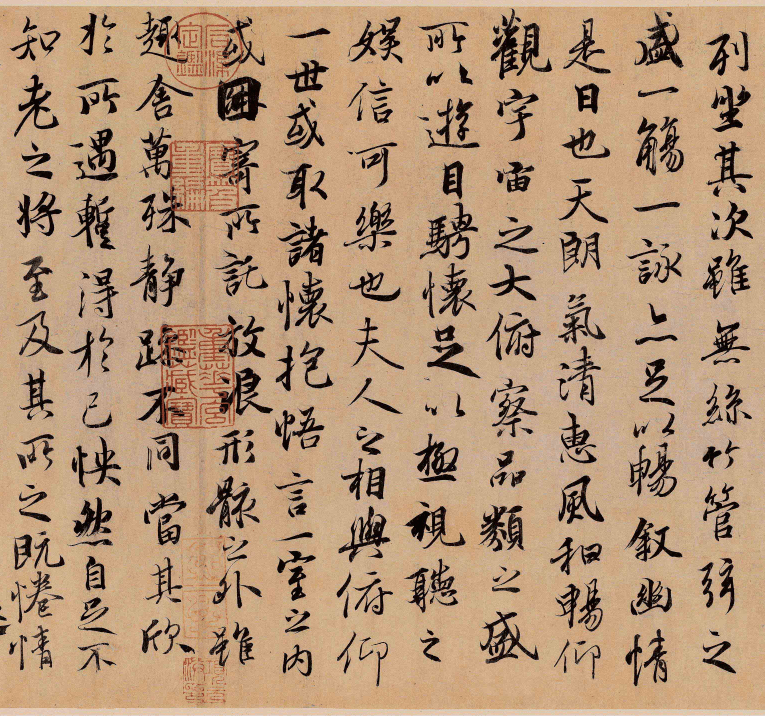 列坐其次雖無絲竹管弦之
盛一觴一詠亦足以暢敘幽情
是日也天朗氣清惠風和暢仰
觀宇宙之大俯察品類之盛
所以遊目騁懷足以極視聽之
娛信可樂也夫人之相與俯仰
一世或取諸懷抱悟言一室之內
或因寄所託放浪形骸之外雖
趣舍萬殊静躁不同當其欣
於所遇暫得於己怏然自足不
知老之將至及其所之既惓情